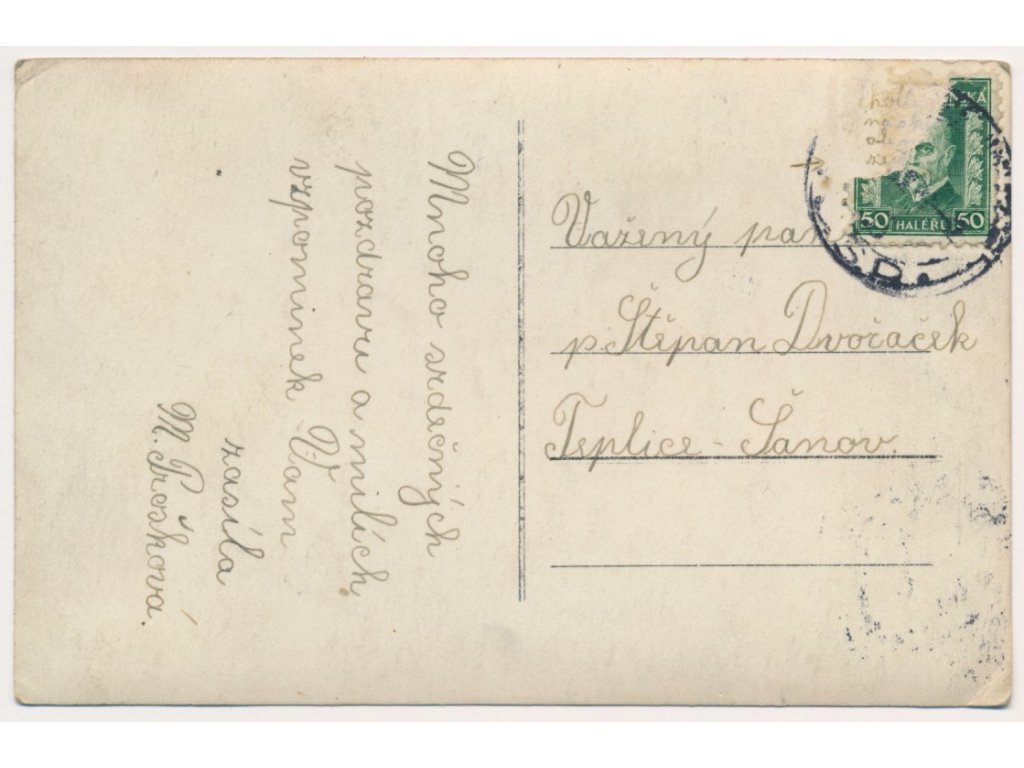 Mnoho srdečných
pozdravu a milích
vzpomínek Vam
zasíla
M. Proškova.
Vážený pan
p. Štěpan Dvořaček
Teplice - Šanov.
50 HALÉŘŮ 50